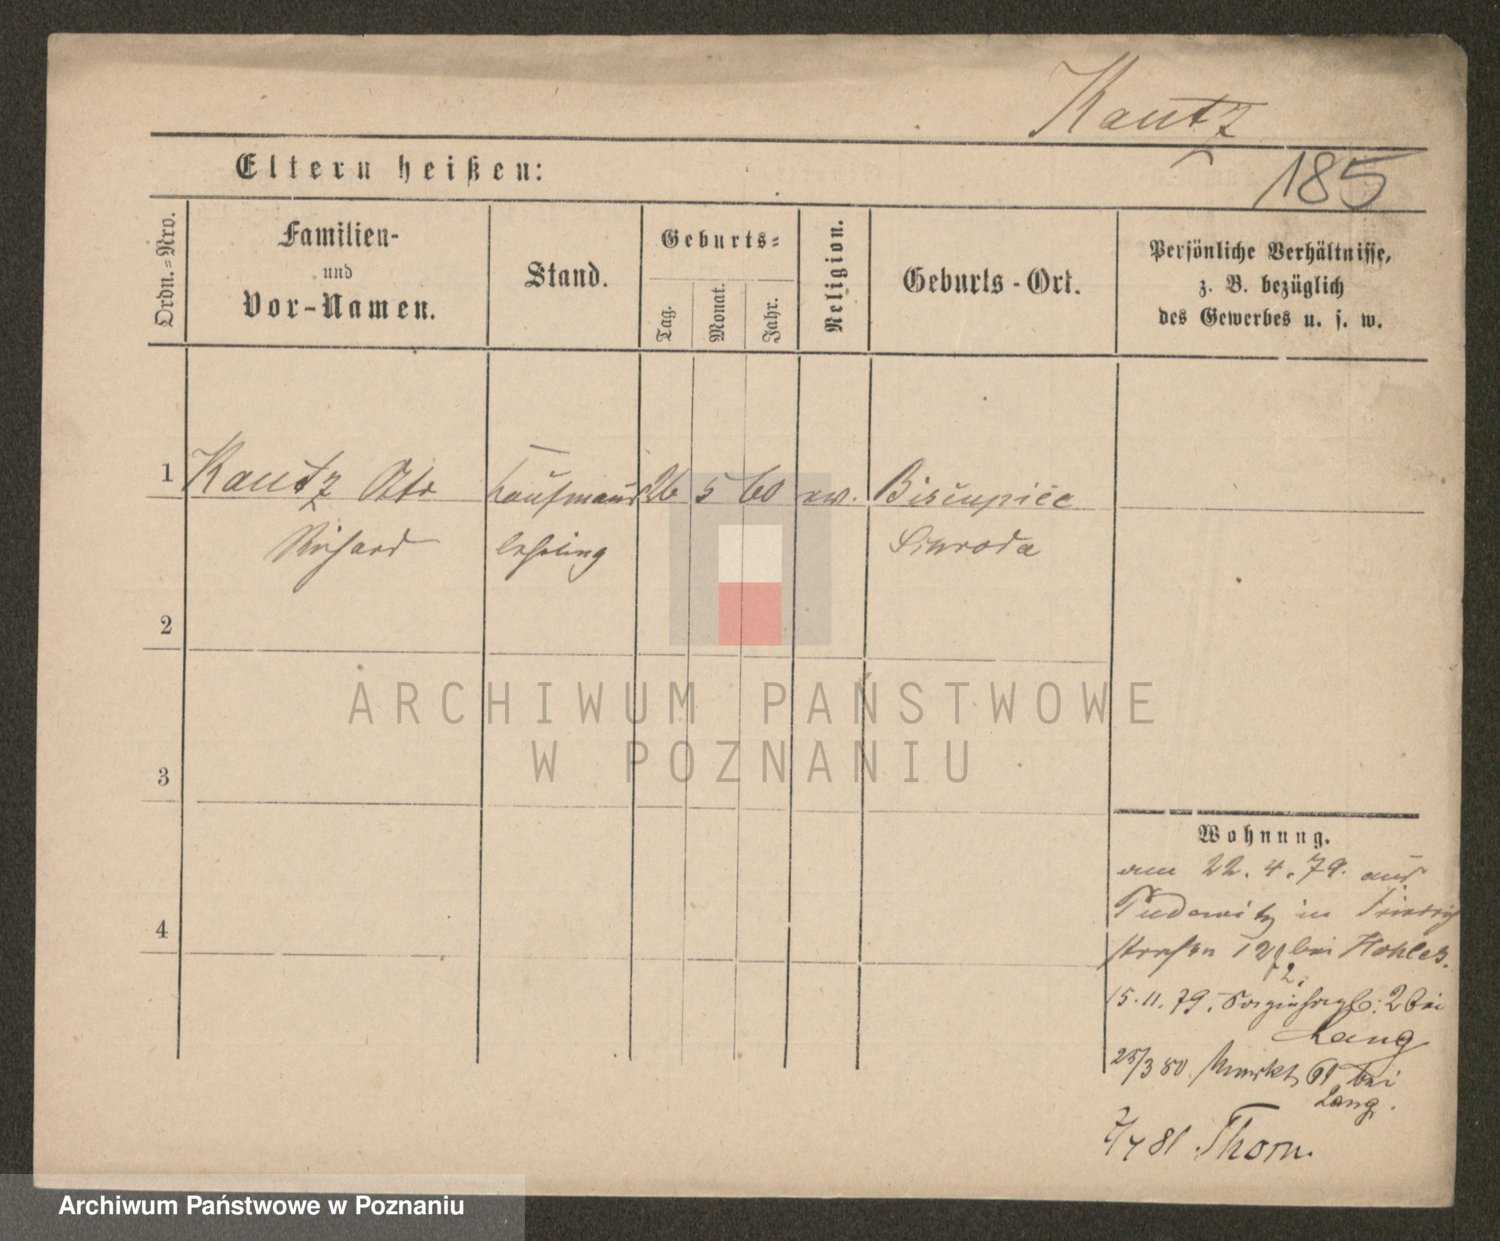 Kautz
185
Eltern heißen:
Ordn.=Nro.
Familien-
und
Vor-Namen.
Stand.
Geburts=
Tag.
Monat.
Jahr.
Religion.
Geburts-Ort.
Persönliche Verhältnisse,
z. B. bezüglich
des Gewerbes u. s. w.
1 Kautz Otto Kaufmanns 26 5 60 ev. Biscupice
Richard lehrling Schroda
2
3
4
Wohnung.
am 22. 4. 79. aus
Pudewitz in Friedrich
straßen bei Kohler.
2.
15. 11. 79. 2 bei
Lang
25/3 80. Markt 61 bei
Lang.
2/4 81. Thorn.
ARCHIWUM PAŃSTWOWE
W POZNANIU
Archiwum Państwowe w Poznaniu